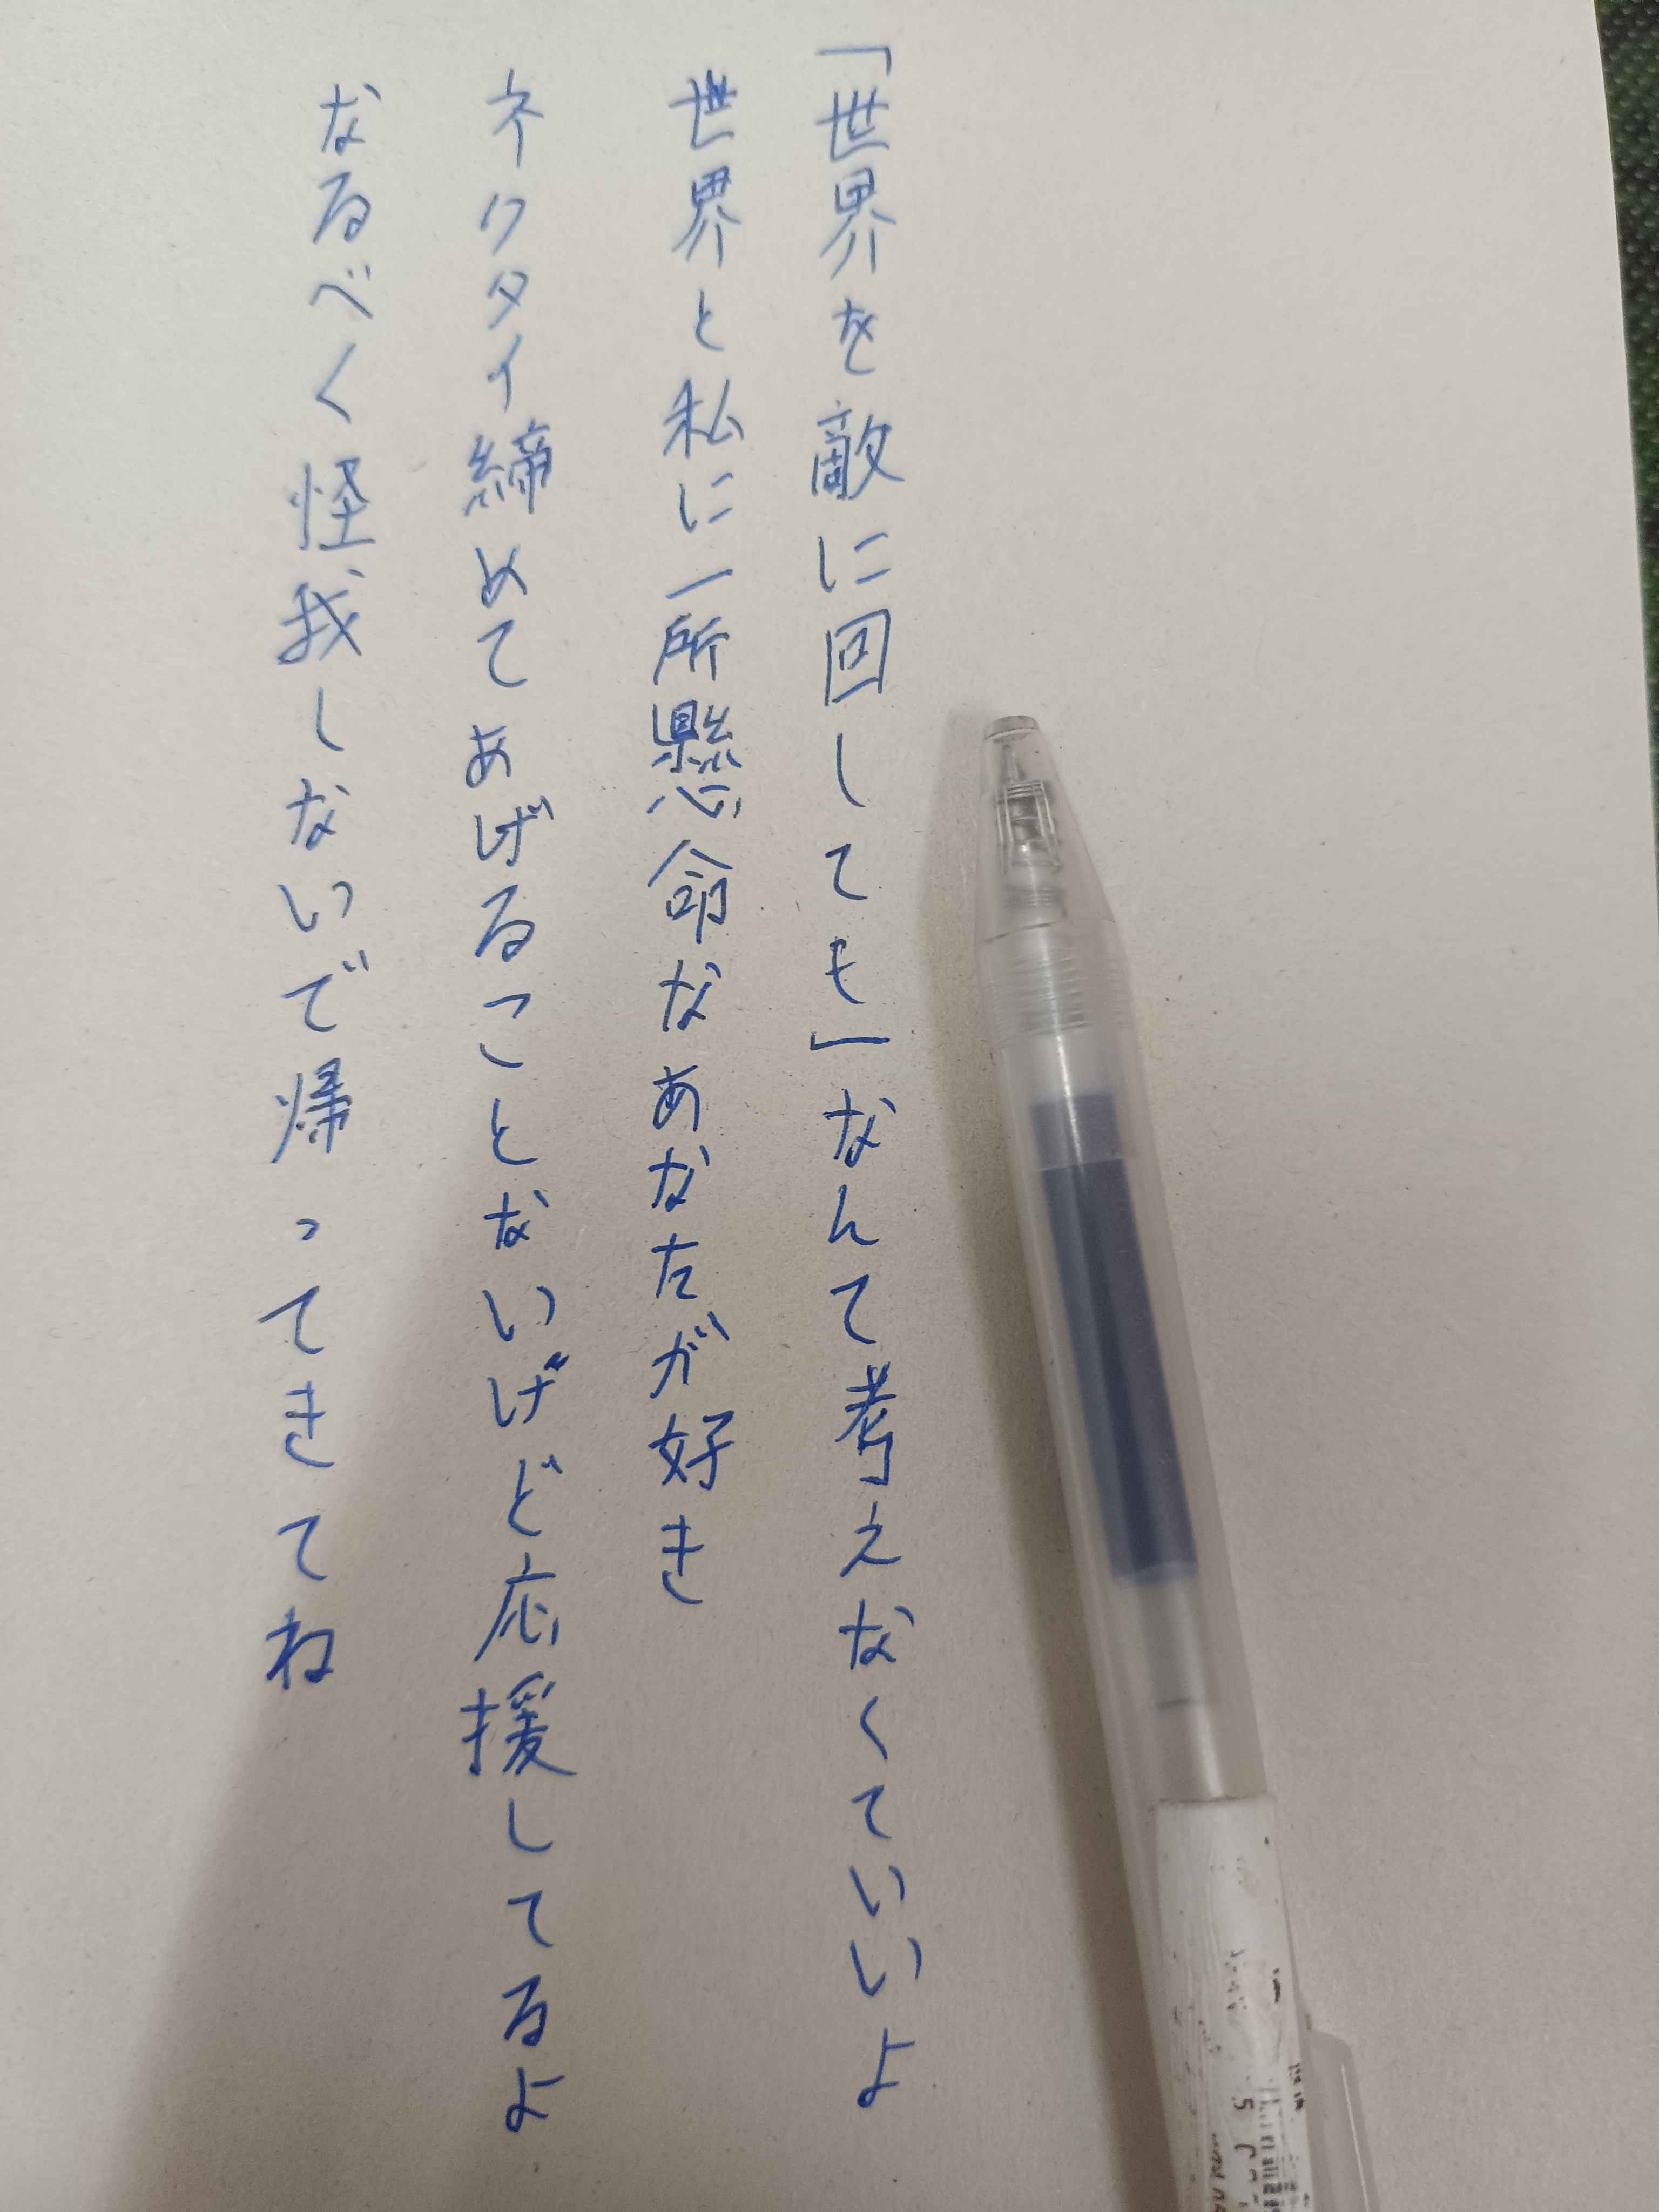 「世界を敵に回しても」なんて考えなくていいよ
世界と私に一所懸命なあなたが好き
ネクタイ締めてあげることないげど応援してるよ
なるべく怪我しないで帰ってきてね